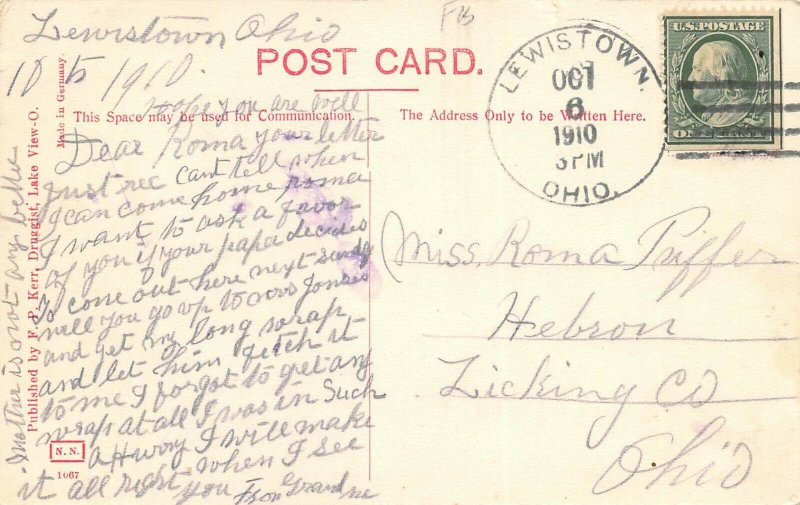 Lewistown Ohio
10 5 1910.
FB
POST CARD.
Made in Germany.
This Space may be used for Communication.
The Address Only to be Written Here.
Published by F. P. Kerr, Druggist, Lake View-O.
N. N.
1067
LEWISTOWN,
OCT
6
1910
3 PM
OHIO.
U.S. POSTAGE
ONE CENT
hope you are well
Dear Roma your letter
just rec cant tell when
I can come home roma
I want to ask a favor
of you if your papa decides
to come out here next sundy
will you go up to Jonses
and get my long wrap
and let him fetch it
to me I forgot to get any
wrap at all I was in Such
a Hurry I will make
it all right when I see
you From Grand
mother is not any better
Miss. Roma Piffer
Hebron
Licking Co
Ohio